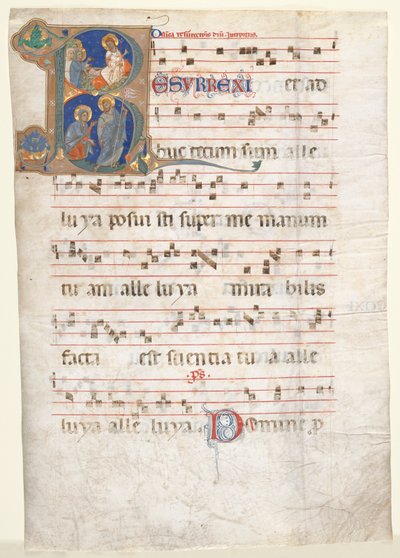 resurrectionis dni. Introitus.
RESURREXI et ad
huc tecum sum alle
luya posui sti super me manum
tu am alle lu ya mira bilis
facta est scientia tu a alle
ps
lu ya alle lu ya. Domine p